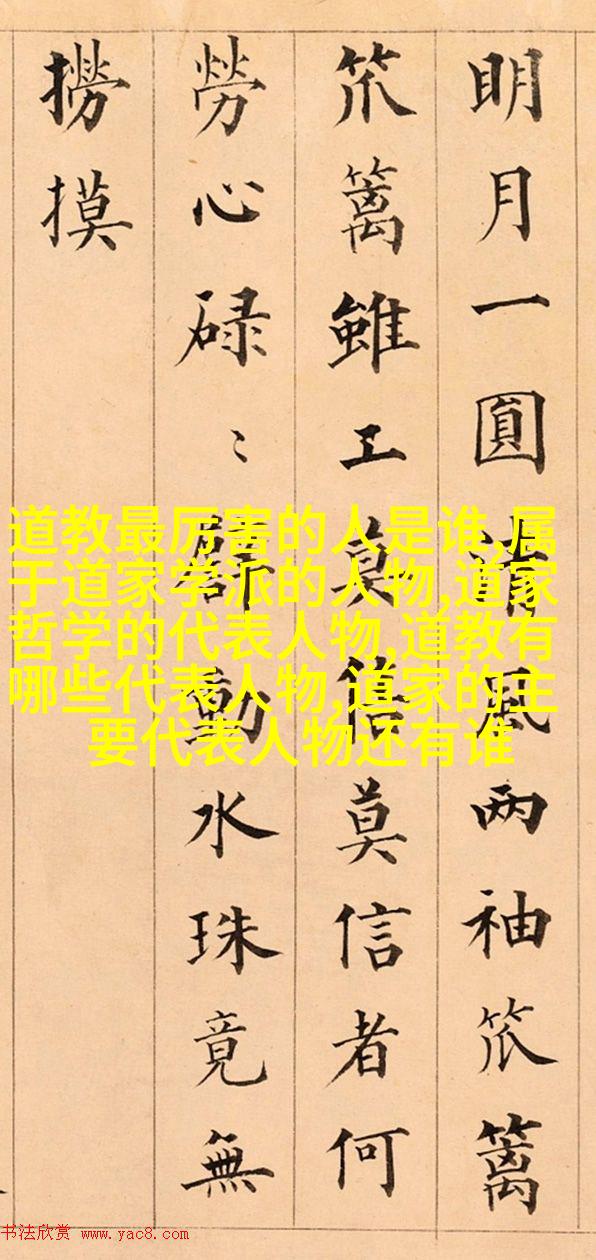 明月一圓清風两袖笊篱
笊篱雖工莫信莫信者何
勞心碌〻動水珠竟無
撈摸
道教最厉害的人是谁,属
于道家学派的人物,道家
哲学的代表人物,道教有
哪些代表人物,道家的主
要代表人物还有谁
书法欣赏 www.yac8.com